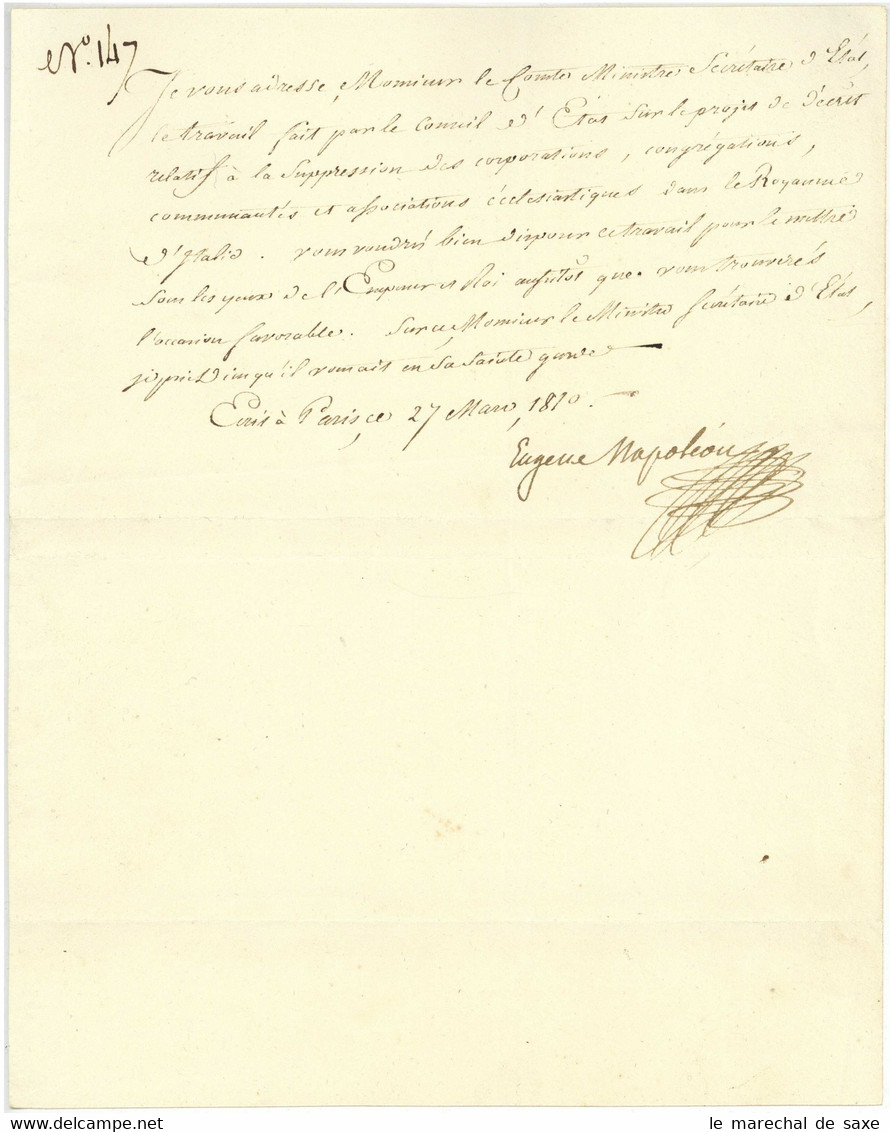 No. 147
Je vous adresse, Monsieur le Comte Ministre Secrétaire d'Etat,
le travail fait par le Conseil d'Etat sur le projet de décret
relatif à la Suppression des corporations, congrégations,
communautés et associations écclesiastiques dans le Royaume
d'Italie. vous voudrés bien disposer ce travail pour le mettre
sous les yeux de l'Empereur et Roi aussitôt que vous trouverés
l'occasion favorable. Sur ce, Monsieur le Ministre Secrétaire d'Etat,
je prie Dieu qu'il vous ait en sa sainte garde
Ecrit à Paris, ce 27 Mars, 1810.
Eugene Napoléon
le marechal de saxe